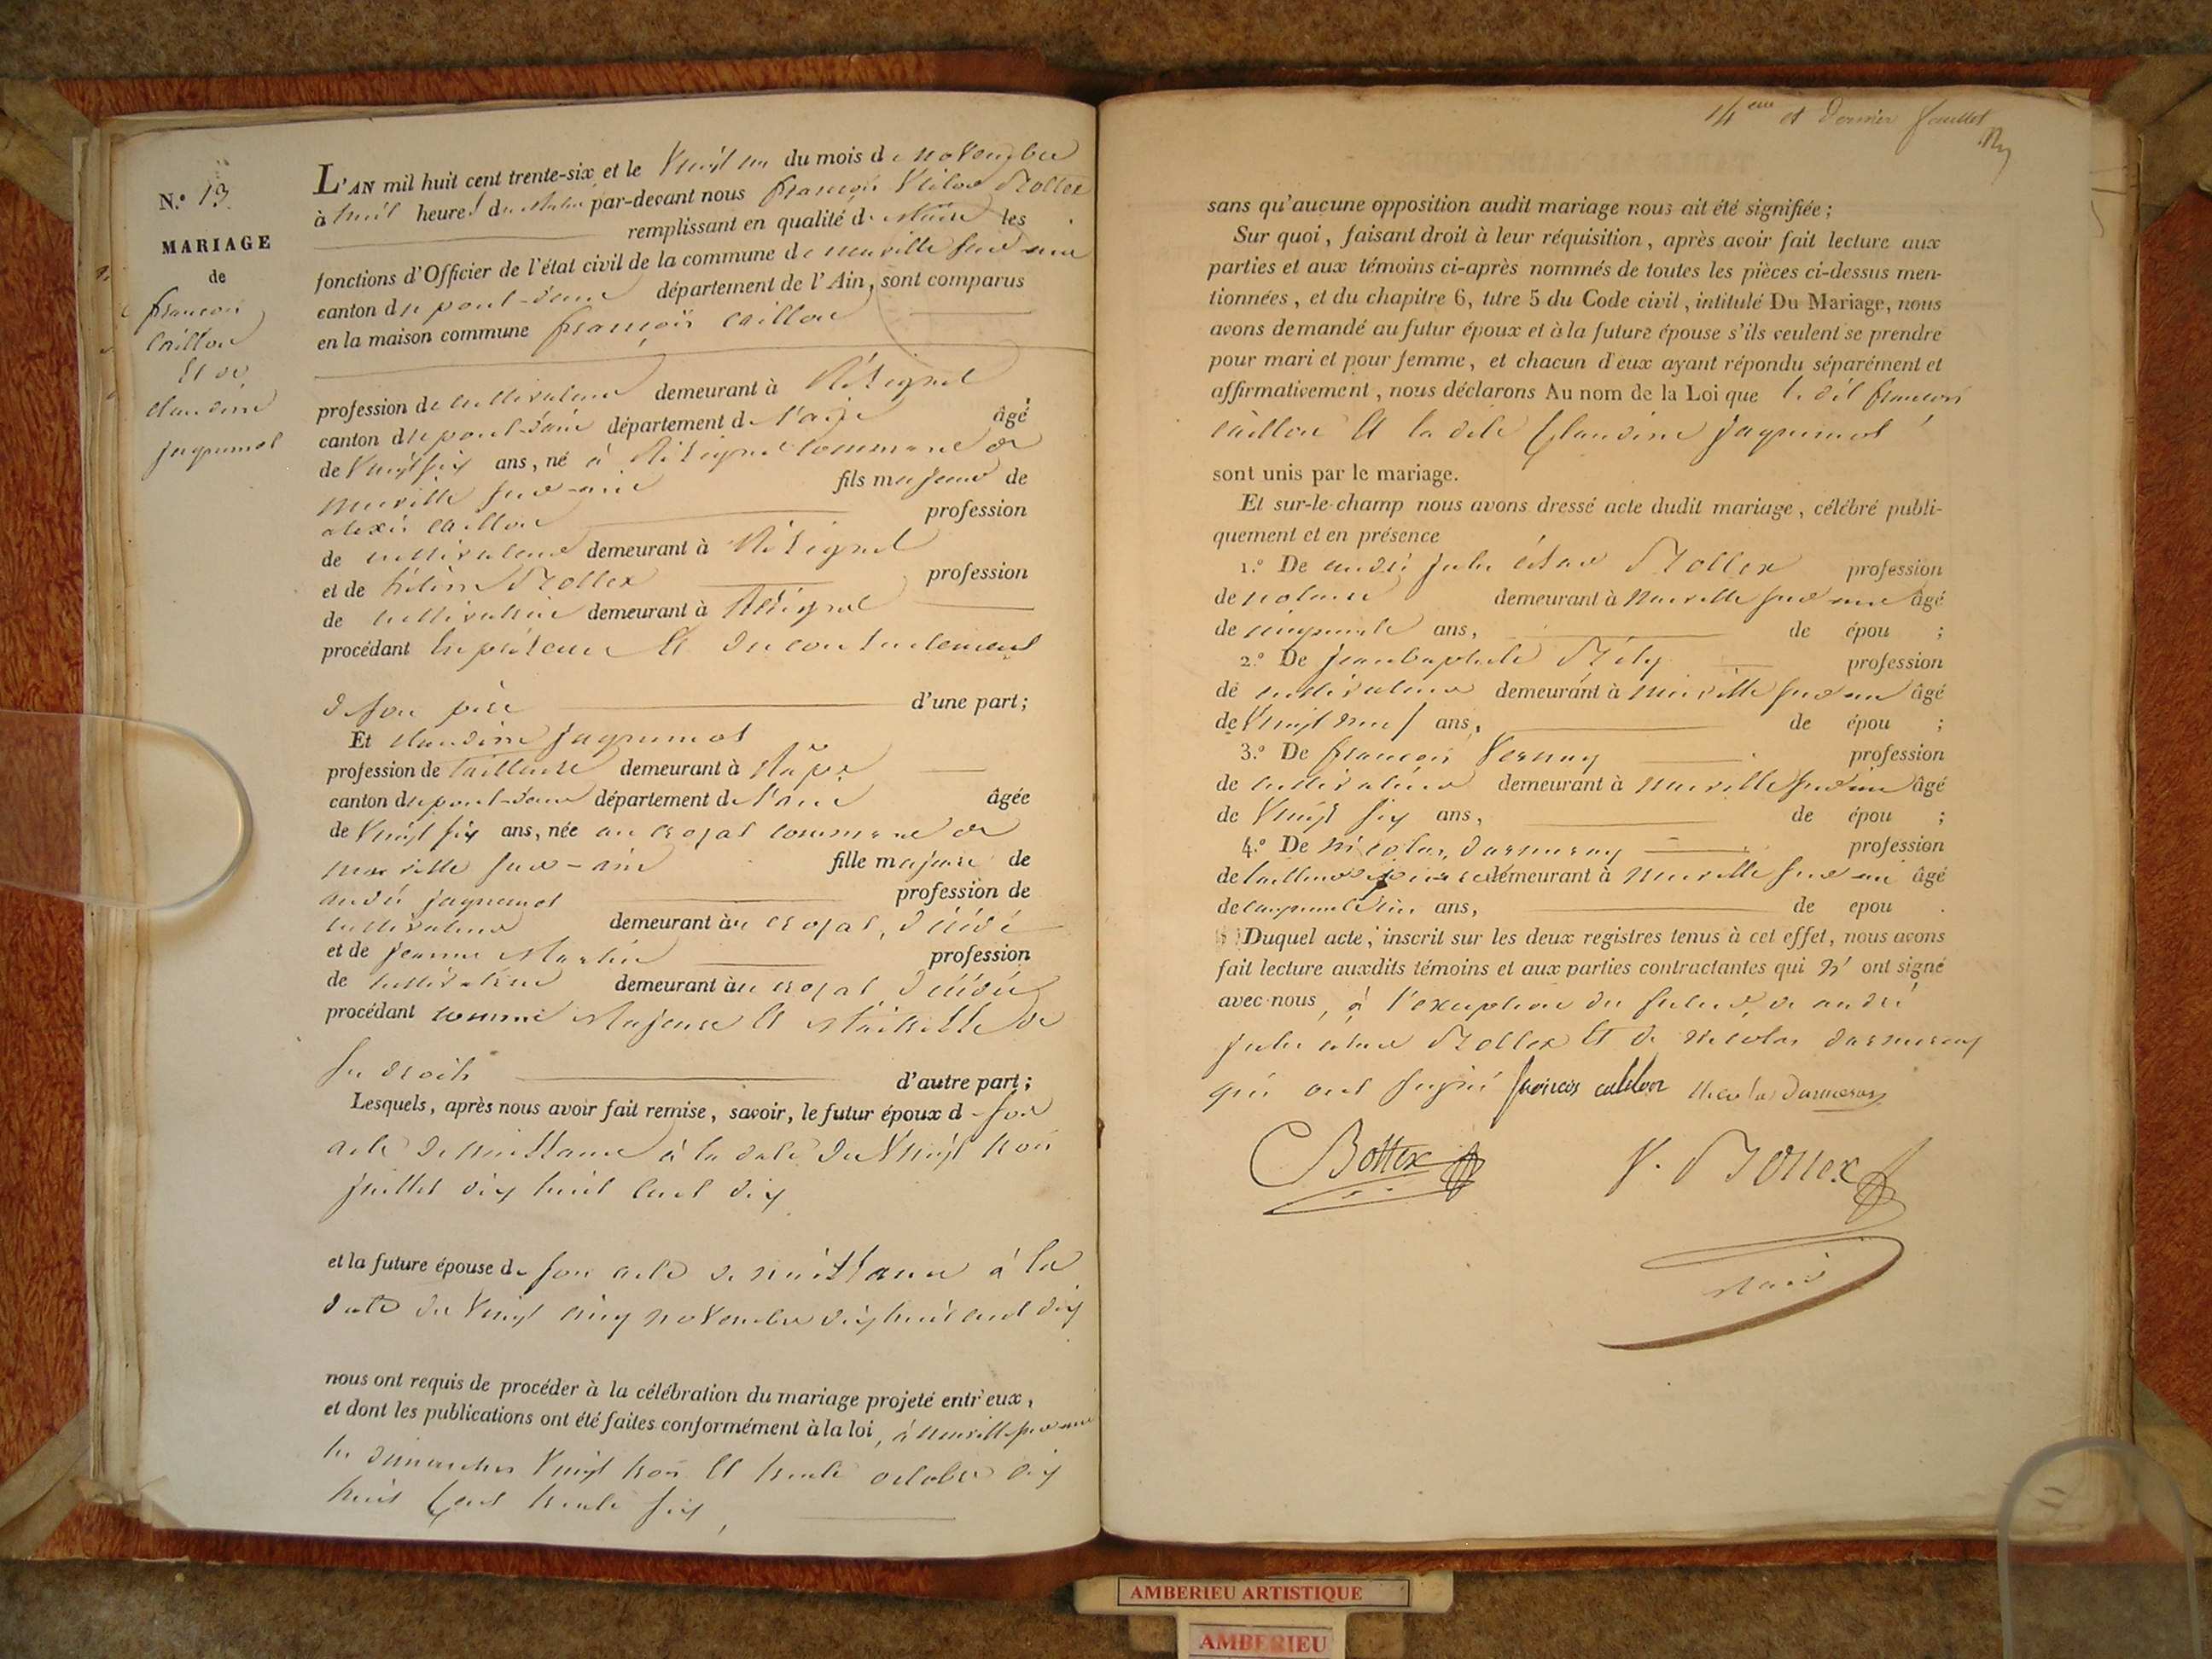 N.° 13
MARIAGE
de
françois
Caillon
Et de
claudine
jaquemet
L'AN mil huit cent trente-six et le Vingt un du mois de novembre
à huit heures du matin par-devant nous françois Victor Bottex
remplissant en qualité de Maire les
fonctions d'Officier de l'état civil de la commune de neuville sur ain
canton du pont-d'ain département de l'Ain, sont comparus
en la maison commune françois caillon
profession de cultivateur demeurant à
canton du pont-d'ain département de l'ain âgé
de Vingt six ans, né à commune de
neuville sur-ain fils majeur de
alexis caillon profession
de cultivateur demeurant à
et de Bottex profession
de cultivatrice demeurant à
procédant et du consentement
de son père d'une part;
Et claudine jaquemet
profession de tailleuse demeurant à
canton du pont-d'ain département de l'ain âgée
de Vingt six ans, née au commune de
neuville sur-ain fille majeure de
andré jaquemet profession de
cultivateur demeurant au décédé
et de jeanne Martin profession
de cultivatrice demeurant au décédée
procédant comme Majeure Et Maitresse de
ses droits d'autre part;
Lesquels, après nous avoir fait remise, savoir, le futur époux de son
acte de naissance à la date du Vingt trois
juillet dix huit cent dix
et la future épouse de son acte de naissance à la
date du Vingt cinq novembre dix huit cent dix
nous ont requis de procéder à la célébration du mariage projeté entr'eux,
et dont les publications ont été faites conformément à la loi, à neuville sur ain
les dimanches Vingt trois Et trente octobre dix
huit Cent trente six,
14eme et dernier feuillet
sans qu'aucune opposition audit mariage nous ait été signifiée;
Sur quoi, faisant droit à leur réquisition, après avoir fait lecture aux
parties et aux témoins ci-après nommés de toutes les pièces ci-dessus men-
tionnées, et du chapitre 6, titre 5 du Code civil, intitulé Du Mariage, nous
avons demandé au futur époux et à la future épouse s'ils veulent se prendre
pour mari et pour femme, et chacun d'eux ayant répondu séparément et
affirmativement, nous déclarons Au nom de la Loi que le dit françois
caillon Et la dite Claudine jaquemet
sont unis par le mariage.
Et sur-le-champ nous avons dressé acte dudit mariage, célébré publi-
quement et en présence
1.° De andré jules césar Bottex profession
de notaire demeurant à Neuville sur ain âgé
de cinquante ans, de épou ;
2.° De jeanbaptiste profession
de cultivateur demeurant à neuville sur ain âgé
de Vingt neuf ans, de épou ;
3.° De françois Vernay profession
de cultivateur demeurant à neuville sur ain âgé
de Vingt six ans, de épou ;
4.° De nicolas darmeray profession
de tailleur de pierre demeurant à Neuville sur ain âgé
de cinquante ans, de epou .
Duquel acte, inscrit sur les deux registres tenus à cet effet, nous avons
fait lecture auxdits témoins et aux parties contractantes qui n' ont signé
avec nous, à l'exception du futur, de andré
jules césar Bottex Et de nicolas darmeray
qui ont signé françois Nicolas Darmeray
C Bottex V. Bottex
AMBERIEU ARTISTIQUE
AMBERIEU